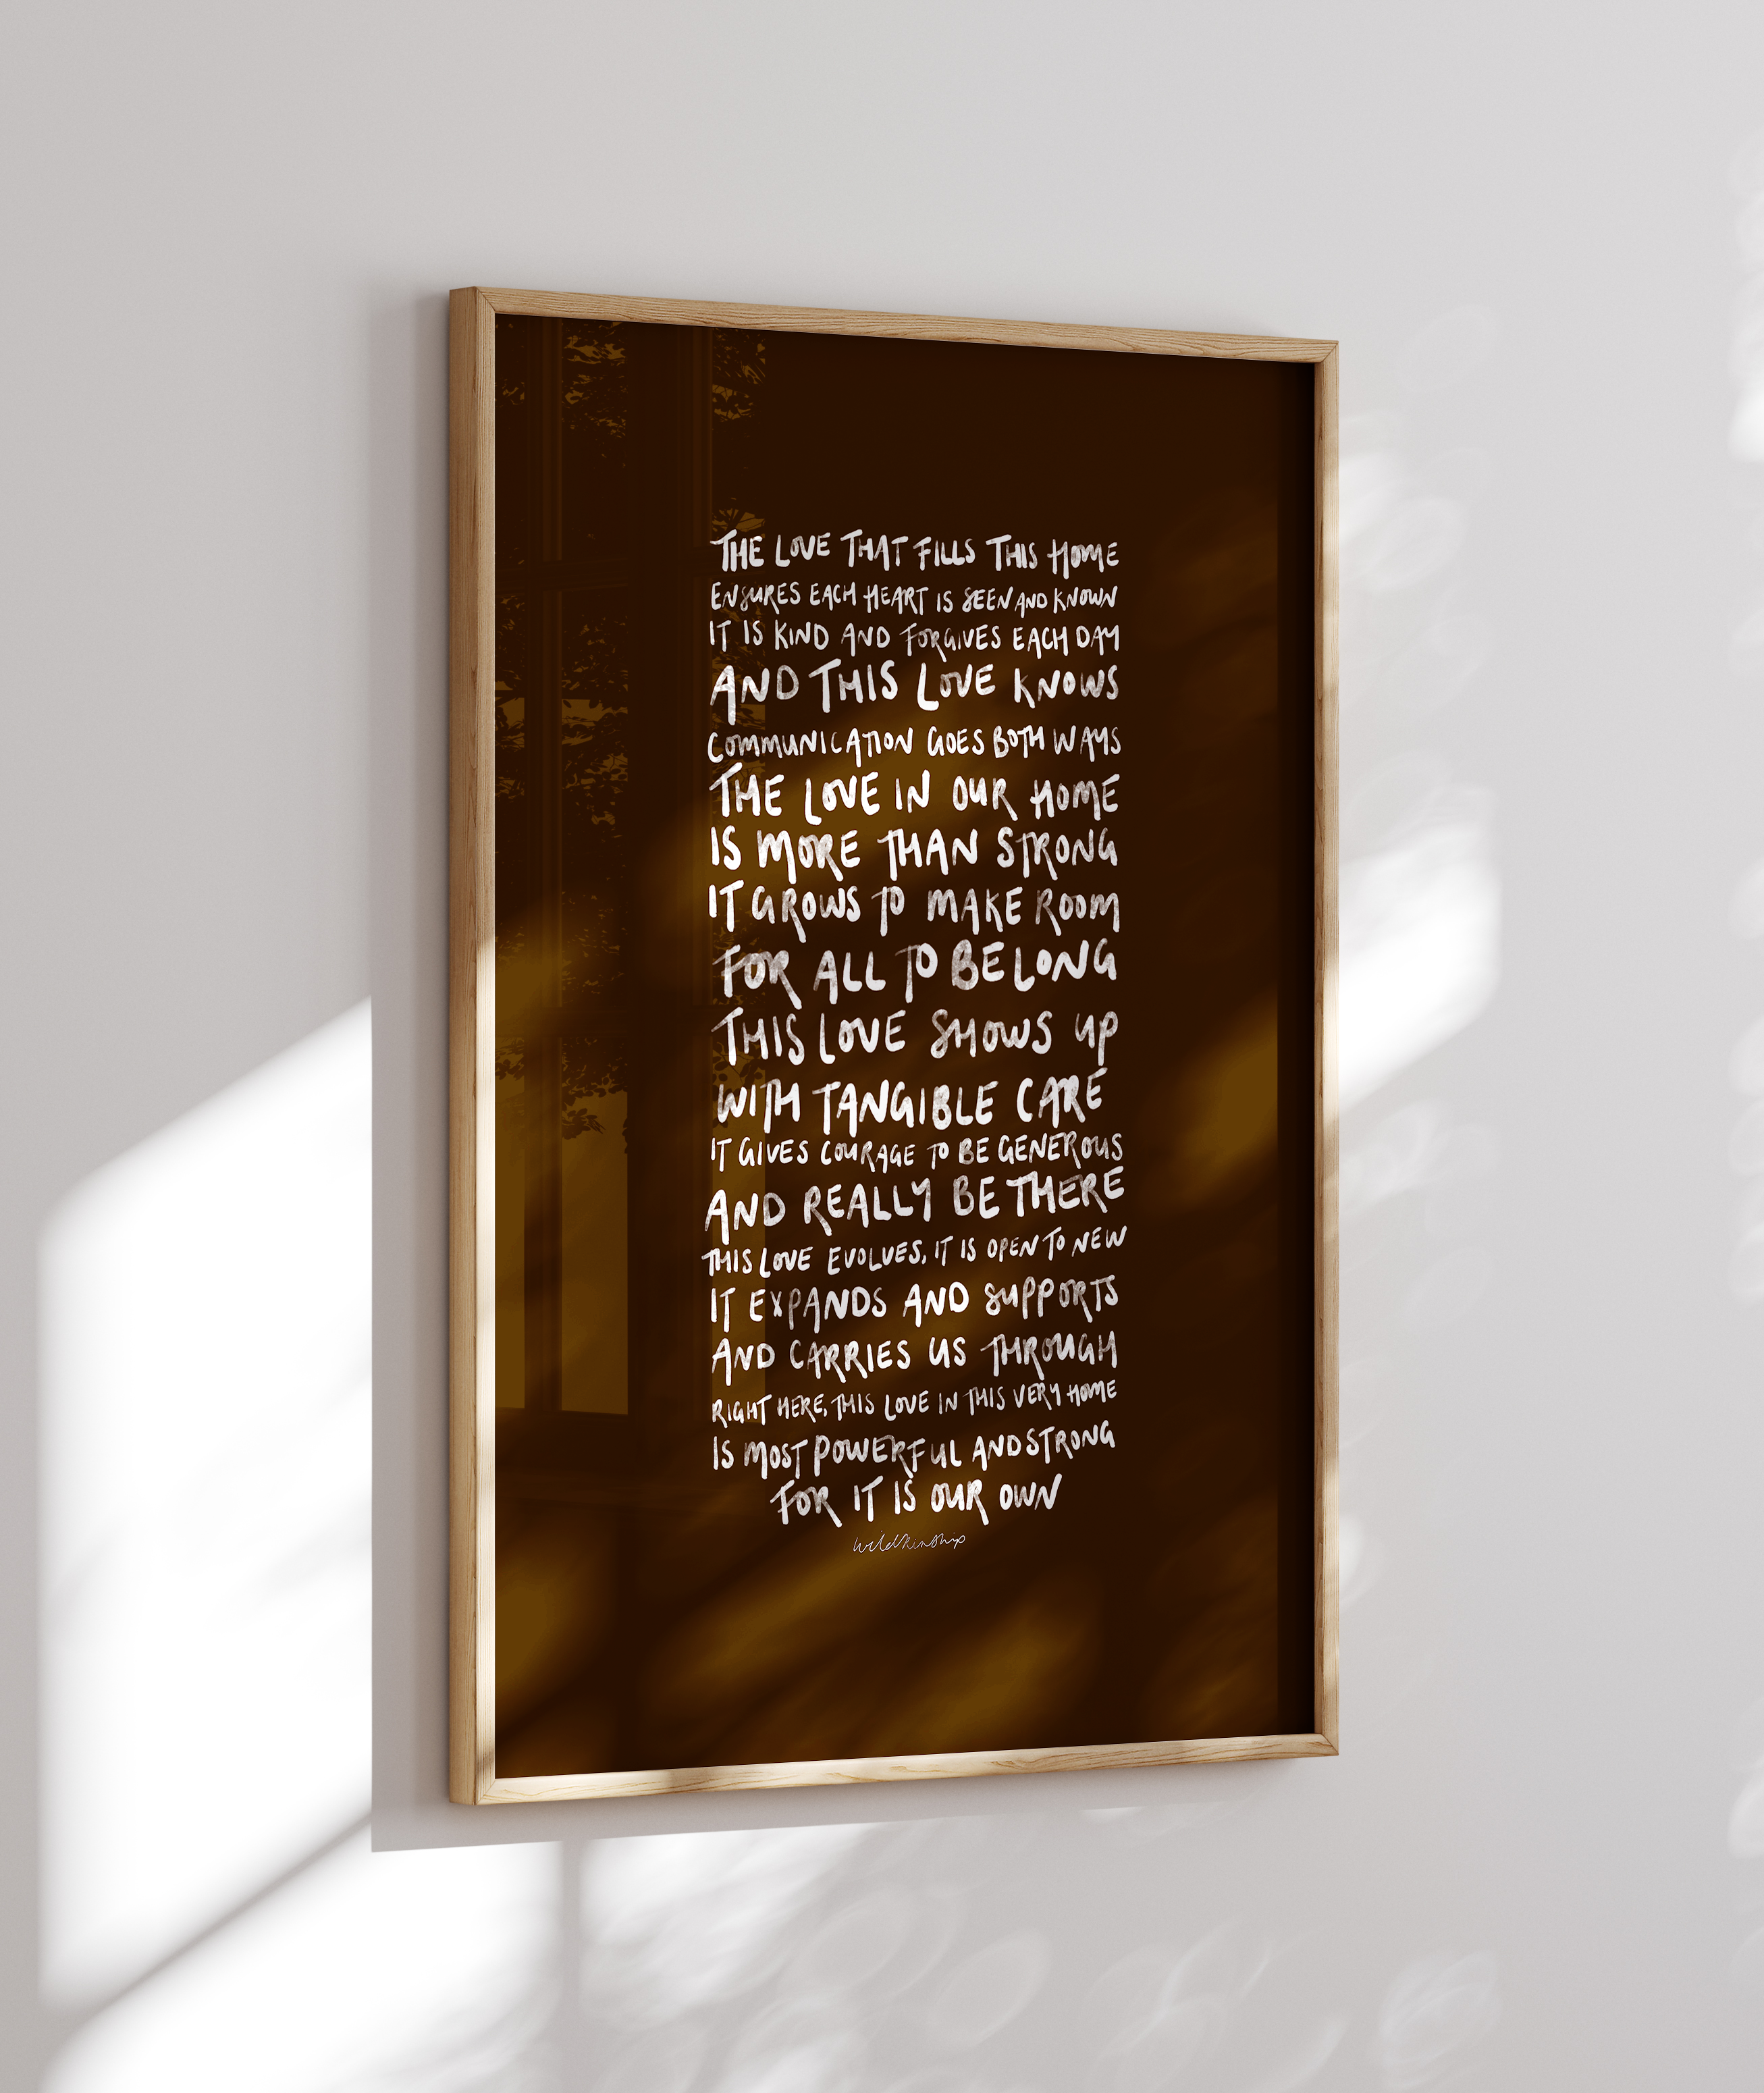 THE LOVE THAT FILLS THIS HOME
ENSURES EACH HEART IS SEEN AND KNOWN
IT IS KIND AND FORGIVES EACH DAY
AND THIS LOVE KNOWS
COMMUNICATION GOES BOTH WAYS
THE LOVE IN OUR HOME
IS MORE THAN STRONG
IT GROWS TO MAKE ROOM
FOR ALL TO BELONG
THIS LOVE SHOWS UP
WITH TANGIBLE CARE
IT GIVES COURAGE TO BE GENEROUS
AND REALLY BE THERE
THIS LOVE EVOLVES, IT IS OPEN TO NEW
IT EXPANDS AND SUPPORTS
AND CARRIES US THROUGH
RIGHT HERE, THIS LOVE IN THIS VERY HOME
IS MOST POWERFUL AND STRONG
FOR IT IS OUR OWN
wildkinship